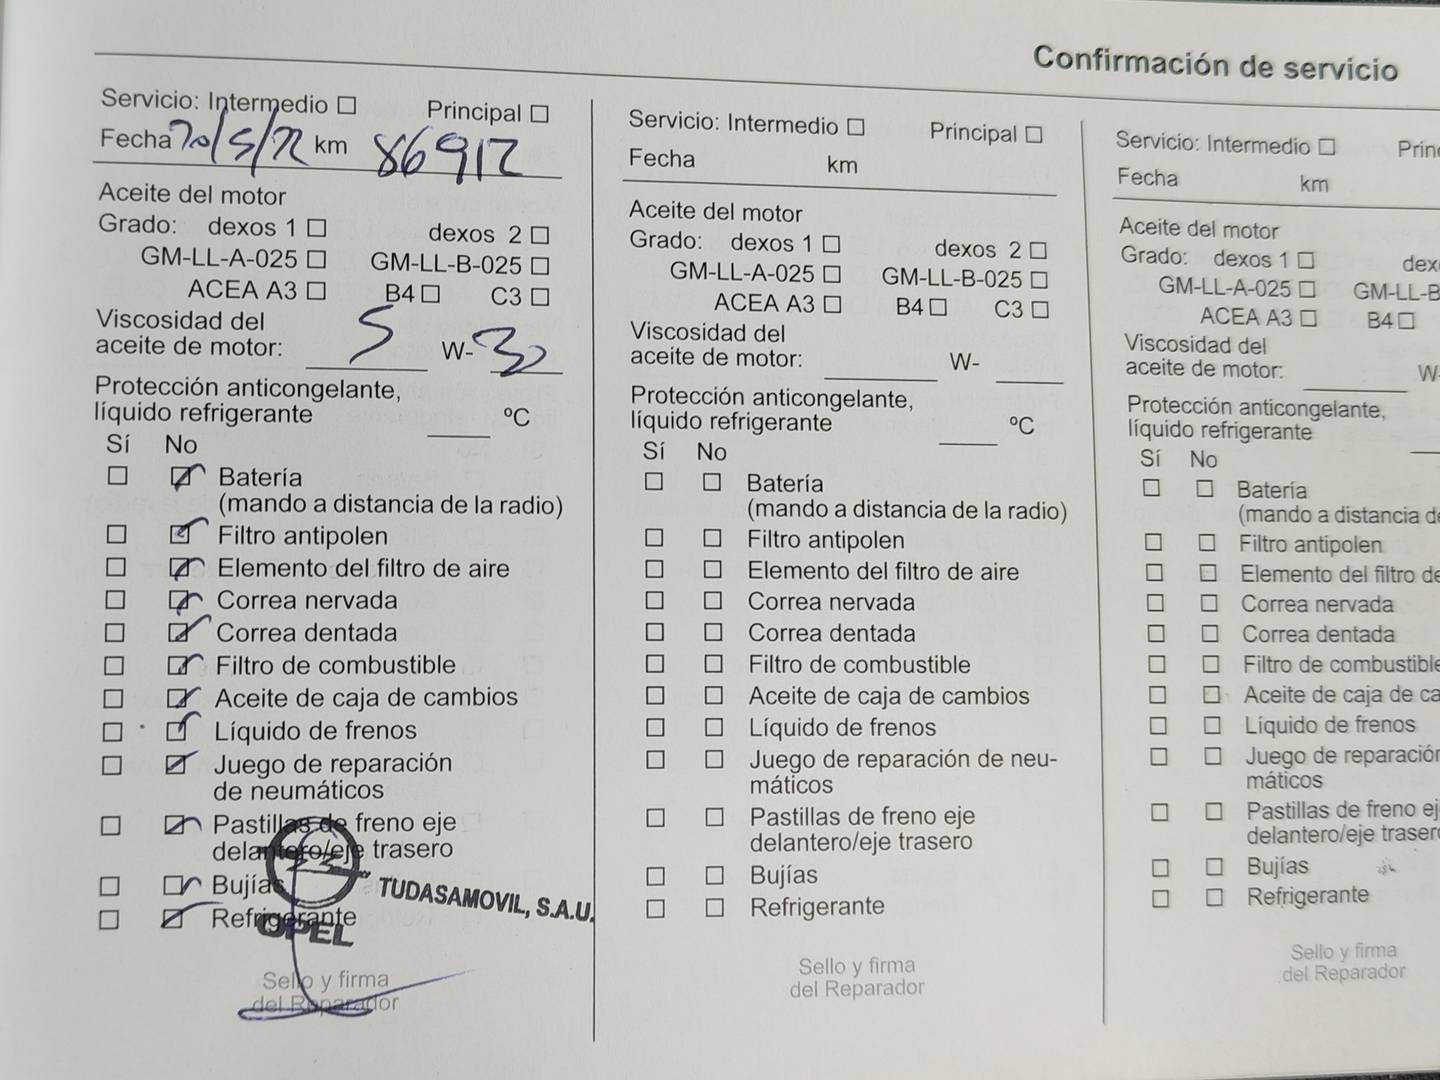 Confirmación de servicio
Servicio: Intermedio Principal
Fecha 20/5/22 km 86912
Aceite del motor
Grado: dexos 1 dexos 2
GM-LL-A-025 GM-LL-B-025
ACEA A3 B4 C3
Viscosidad del
aceite de motor: 5 W-30
Protección anticongelante,
líquido refrigerante ºC
Sí No
Batería
(mando a distancia de la radio)
Filtro antipolen
Elemento del filtro de aire
Correa nervada
Correa dentada
Filtro de combustible
Aceite de caja de cambios
Líquido de frenos
Juego de reparación
de neumáticos
Pastillas de freno eje
delantero/eje trasero
Bujías
TUDASAMOVIL, S.A.U.
Refrigerante
OPEL
Sello y firma
del Reparador
Servicio: Intermedio Principal
Fecha km
Aceite del motor
Grado: dexos 1 dexos 2
GM-LL-A-025 GM-LL-B-025
ACEA A3 B4 C3
Viscosidad del
aceite de motor: W-
Protección anticongelante,
líquido refrigerante ºC
Sí No
Batería
(mando a distancia de la radio)
Filtro antipolen
Elemento del filtro de aire
Correa nervada
Correa dentada
Filtro de combustible
Aceite de caja de cambios
Líquido de frenos
Juego de reparación de neu-
máticos
Pastillas de freno eje
delantero/eje trasero
Bujías
Refrigerante
Sello y firma
del Reparador
Servicio: Intermedio Prin
Fecha km
Aceite del motor
Grado: dexos 1 dex
GM-LL-A-025 GM-LL-B
ACEA A3 B4
Viscosidad del
aceite de motor: W
Protección anticongelante,
líquido refrigerante
Sí No
Batería
(mando a distancia d
Filtro antipolen
Elemento del filtro de
Correa nervada
Correa dentada
Filtro de combustible
Aceite de caja de ca
Líquido de frenos
Juego de reparación
máticos
Pastillas de freno ej
delantero/eje traser
Bujías
Refrigerante
Sello y firma
del Reparador